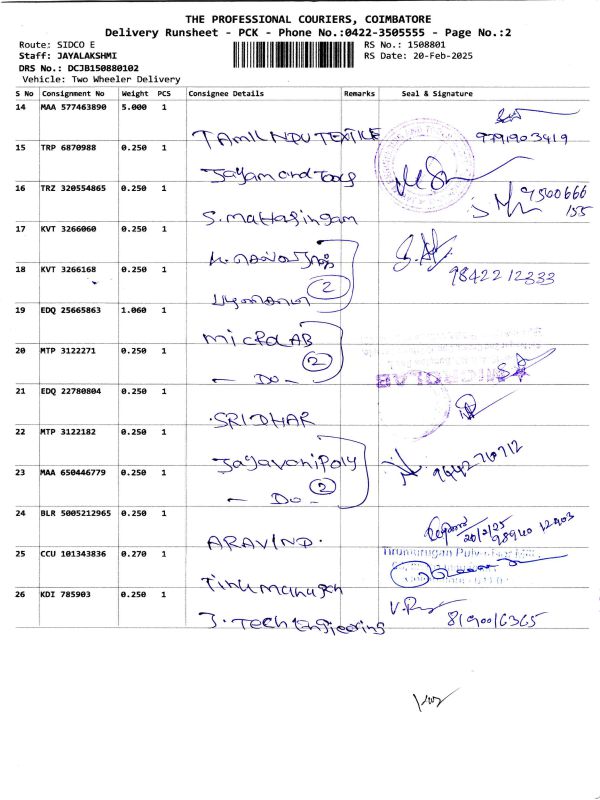 THE PROFESSIONAL COURIERS, COIMBATORE
Delivery Runsheet - PCK - Phone No.:0422-3505555 - Page No.:2
Route: SIDCO E
RS No.: 1508801
Staff: JAYALAKSHMI
RS Date: 20-Feb-2025
DRS No.: DCJB150880102
Vehicle: Two Wheeler Delivery
S No Consignment No Weight PCS Consignee Details Remarks Seal & Signature
14 MAA 577463890 5.000 1
TAMIL NDU TEXTILE
9791903419
15 TRP 6870988 0.250 1
Jayam and Tools
16 TRZ 320554865 0.250 1
S. mathasingam
9500666
155
17 KVT 3266060 0.250 1
18 KVT 3266168 0.250 1
2
9842212333
19 EDQ 25665863 1.060 1
micro LAB
20 MTP 3122271 0.250 1
2
- Do -
MICROLAB
21 EDQ 22780804 0.250 1
SRIDHAR
22 MTP 3122182 0.250 1
Jayavani Poly
9442710712
23 MAA 650446779 0.250 1
2
- Do -
24 BLR 5005212965 0.250 1
ARAVIND.
20/2/25
98940 12903
25 CCU 101343836 0.270 1
Tirumurugan
26 KDI 785903 0.250 1
J. Tech Engieering
8190016365